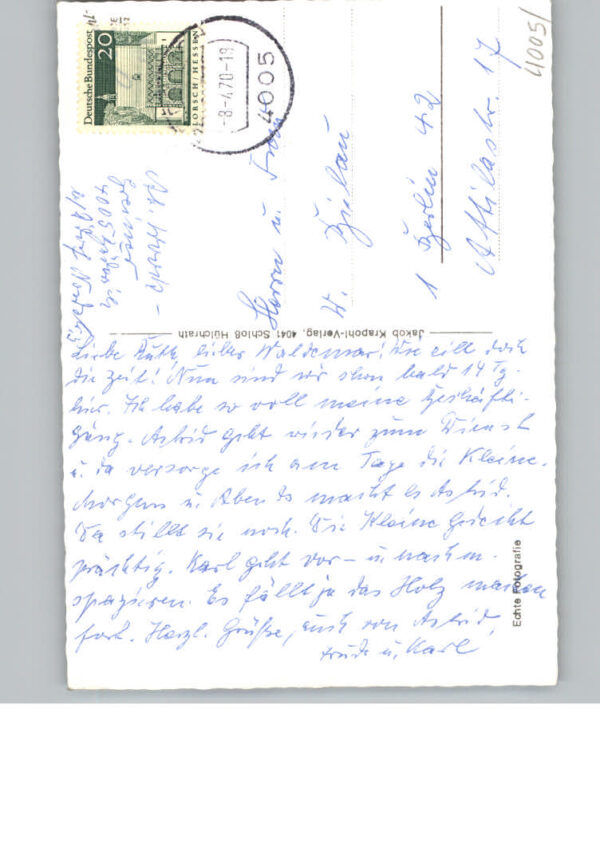 Liebe Ruth, lieber Waldemar! Wie eilt doch
die Zeit! Nun sind wir schon bald 14 Tg.
hier. Ich habe so voll meine Beschäfti-
gung. Astrid geht wieder zum Dienst
u. da versorge ich am Tage die Kleine.
Morgens u. Abends macht es Astrid.
Da stillt sie noch. Die Kleine gedeiht
prächtig. Karl geht vor- u. nachm.
spazieren. Es fällt ja das Holz machen
fort. Herzl. Grüße, auch von Astrid,
Trude u. Karl
Herrn u. Frau
W. Zielau
1 Berlin 42
Attilastr. 17
Deutsche Bundespost
20
LORSCH/HESSEN
-8-4.70-19
4005
4005/
Jakob Krapohl-Verlag, 4041 Schloß Hülchrath
Echte Fotografie